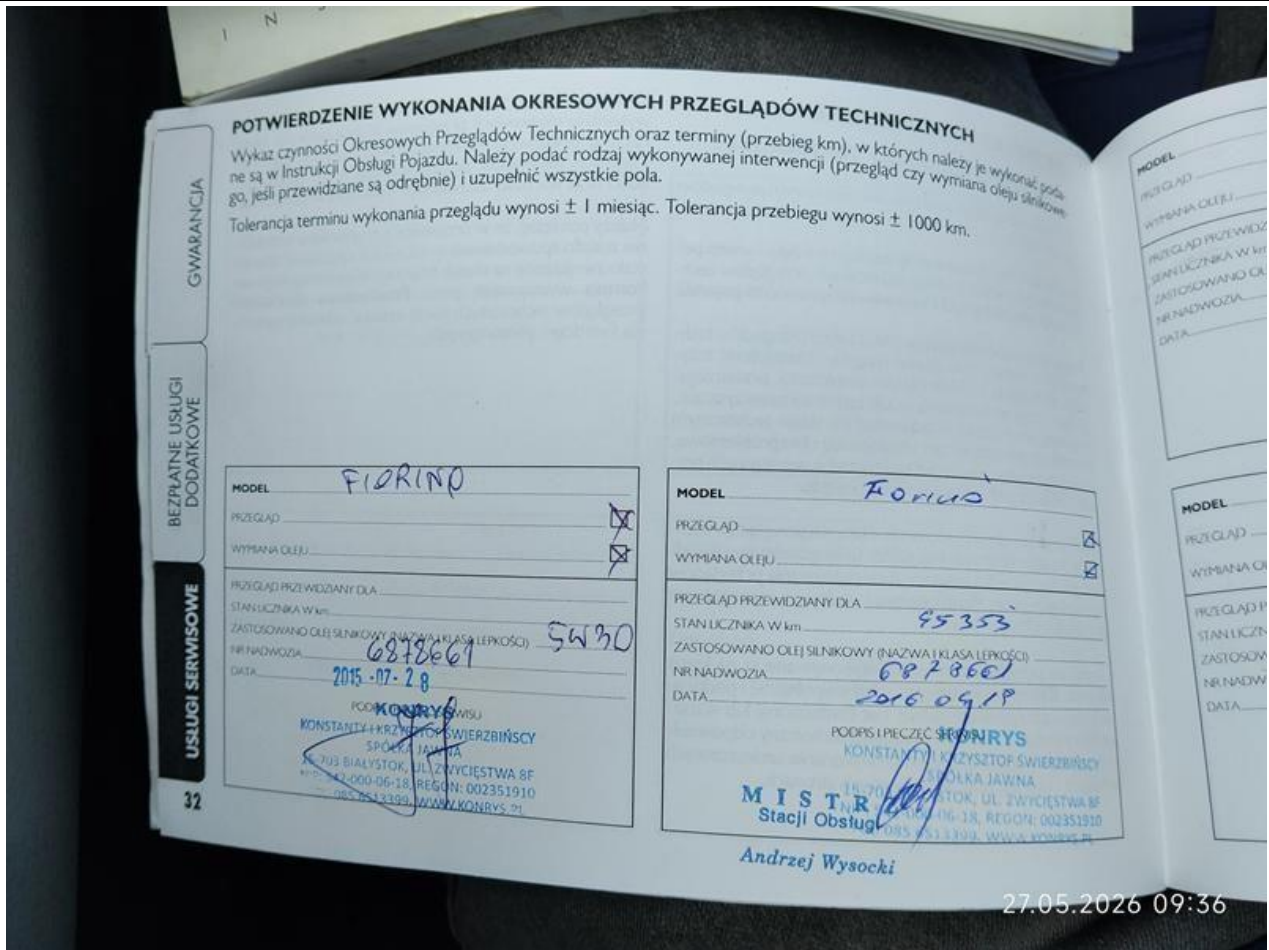 I N
POTWIERDZENIE WYKONANIA OKRESOWYCH PRZEGLĄDÓW TECHNICZNYCH
Wykaz czynności Okresowych Przeglądów Technicznych oraz terminy (przebieg km), w których należy je wykonać poda-
ne są w Instrukcji Obsługi Pojazdu. Należy podać rodzaj wykonywanej interwencji (przegląd czy wymiana oleju silnikowe-
go, jeśli przewidziane są odrębnie) i uzupełnić wszystkie pola.
Tolerancja terminu wykonania przeglądu wynosi ± 1 miesiąc. Tolerancja przebiegu wynosi ± 1000 km.
GWARANCJA
BEZPŁATNE USŁUGI
DODATKOWE
USŁUGI SERWISOWE
32
MODEL FIORINO
PRZEGLĄD
WYMIANA OLEJU
PRZEGLĄD PRZEWIDZIANY DLA
STAN LICZNIKA W km
ZASTOSOWANO OLEJ SILNIKOWY (NAZWA I KLASA LEPKOŚCI) 5W30
NR NADWOZIA 6878661
DATA 2015-07-28
KONRYS
KONSTANTY I KRZYSZTOF ŚWIERZBIŃSCY
SPÓŁKA JAWNA
15-703 BIAŁYSTOK, UL. ZWYCIĘSTWA 8F
542-000-06-18, REGON: 002351910
085 6513399, WWW.KONRYS.PL
MODEL Fiorino
PRZEGLĄD
WYMIANA OLEJU
PRZEGLĄD PRZEWIDZIANY DLA
STAN LICZNIKA W km 45353
ZASTOSOWANO OLEJ SILNIKOWY (NAZWA I KLASA LEPKOŚCI)
NR NADWOZIA 6878661
DATA 2016 04 19
PODPIS I PIECZĘĆ SERWISU
KONRYS
KONSTANTY I KRZYSZTOF ŚWIERZBIŃSCY
SPÓŁKA JAWNA
UL. ZWYCIĘSTWA 8F
06-18, REGON: 002351910
085 6513399, WWW.KONRYS.PL
MISTRZ
Stacji Obsługi
Andrzej Wysocki
MODEL
PRZEGLĄD
WYMIANA OLEJU
PRZEGLĄD PRZEWIDZ
STAN LICZNIKA W km
ZASTOSOWANO OL
NR NADWOZIA
DATA
MODEL
PRZEGLĄD
WYMIANA OL
PRZEGLĄD P
STAN LICZN
ZASTOSOW
NR NADW
DATA
27.05.2026 09:36